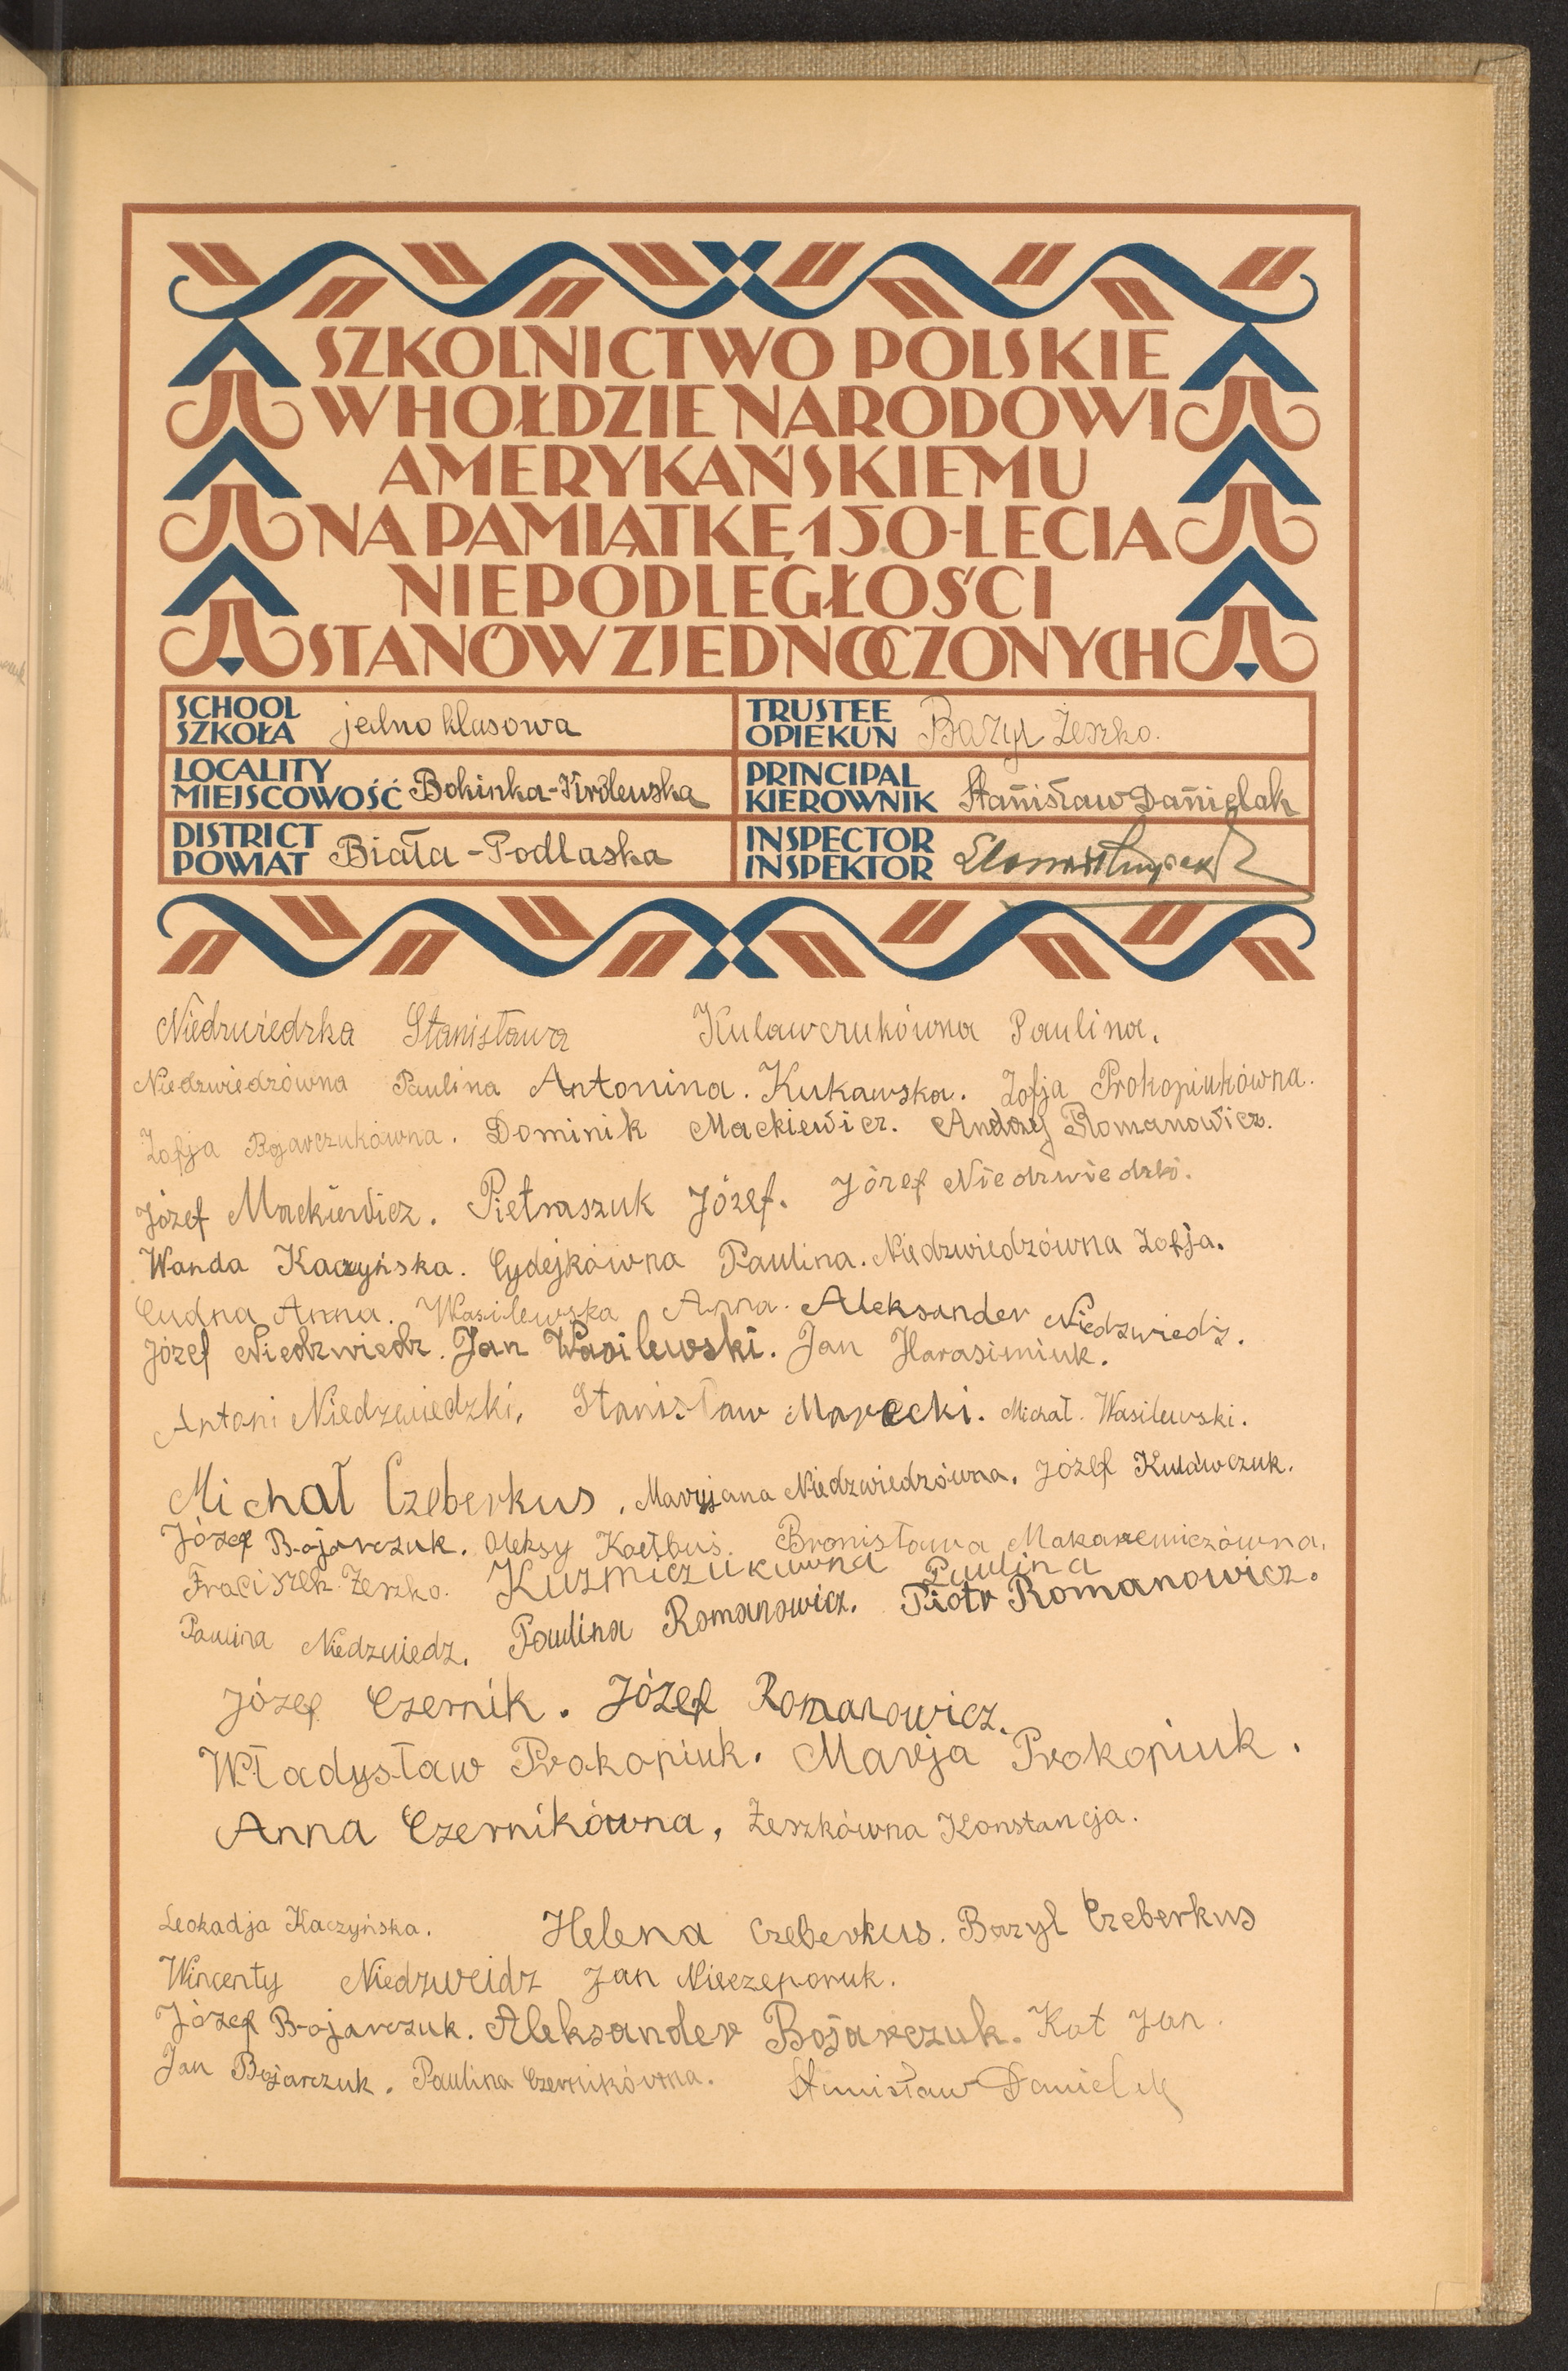 SZKOLNICTWO POLSKIE
W HOŁDZIE NARODOWI
AMERYKAŃSKIEMU
NA PAMIĄTKĘ 150-LECIA
NIEPODLEGŁOŚCI
STANÓW ZJEDNOCZONYCH
SCHOOL
SZKOŁA jedno klasowa
TRUSTEE
OPIEKUN Bazyl Żeszko.
LOCALITY
MIEJSCOWOŚĆ Bokinka-Królewska
PRINCIPAL
KIEROWNIK Stanisław Danielak
DISTRICT
POWIAT Biała-Podlaska
INSPECTOR
INSPEKTOR
Niedzwiedzka Stanisława Kulawczukówna Paulina.
Niedzwiedzówna Paulina Antonina. Kukawska. Zofja Prokopiukówna.
Zofja Bojarczukówna. Dominik Mackiewicz. Andrzej Romanowicz.
Józef Mackiewicz. Pietraszuk Józef. Józef Niedzwiedzki.
Wanda Kaczyńska. Cydejkówna Paulina. Niedzwiedzówna Zofja.
Cudna Anna. Wasilewska Anna. Aleksander Niedzwiedz.
Józef Niedzwiedz. Jan Wasilewski. Jan Harasimiuk.
Antoni Niedzwiedzki. Stanisław Marecki. Michał. Wasilewski.
Michał Czeberkus. Maryjana Niedzwiedzówna. Józef Kulawczuk.
Józef Bojarczuk. Oleksy Kołbuś. Bronisława Makarewiczówna.
Fraciszek Żeszko. Kuzmiczukówna Paulina
Paulina Niedzwiedz. Paulina Romanowicz. Piotr Romanowicz.
Józef Czernik. Józef Romanowicz.
Władysław Prokopiuk. Marja Prokopiuk.
Anna Czernikówna, Żeszkówna Konstancja.
Leokadja Kaczyńska. Helena Czeberkus. Bazyl Czeberkus
Wincenty Niedzweidz Jan Nieczeporuk.
Józef Bojarczuk. Aleksander Bojarczuk. Kot Jan.
Jan Bojarczuk. Paulina Czernikówna. Stanisław Danielak